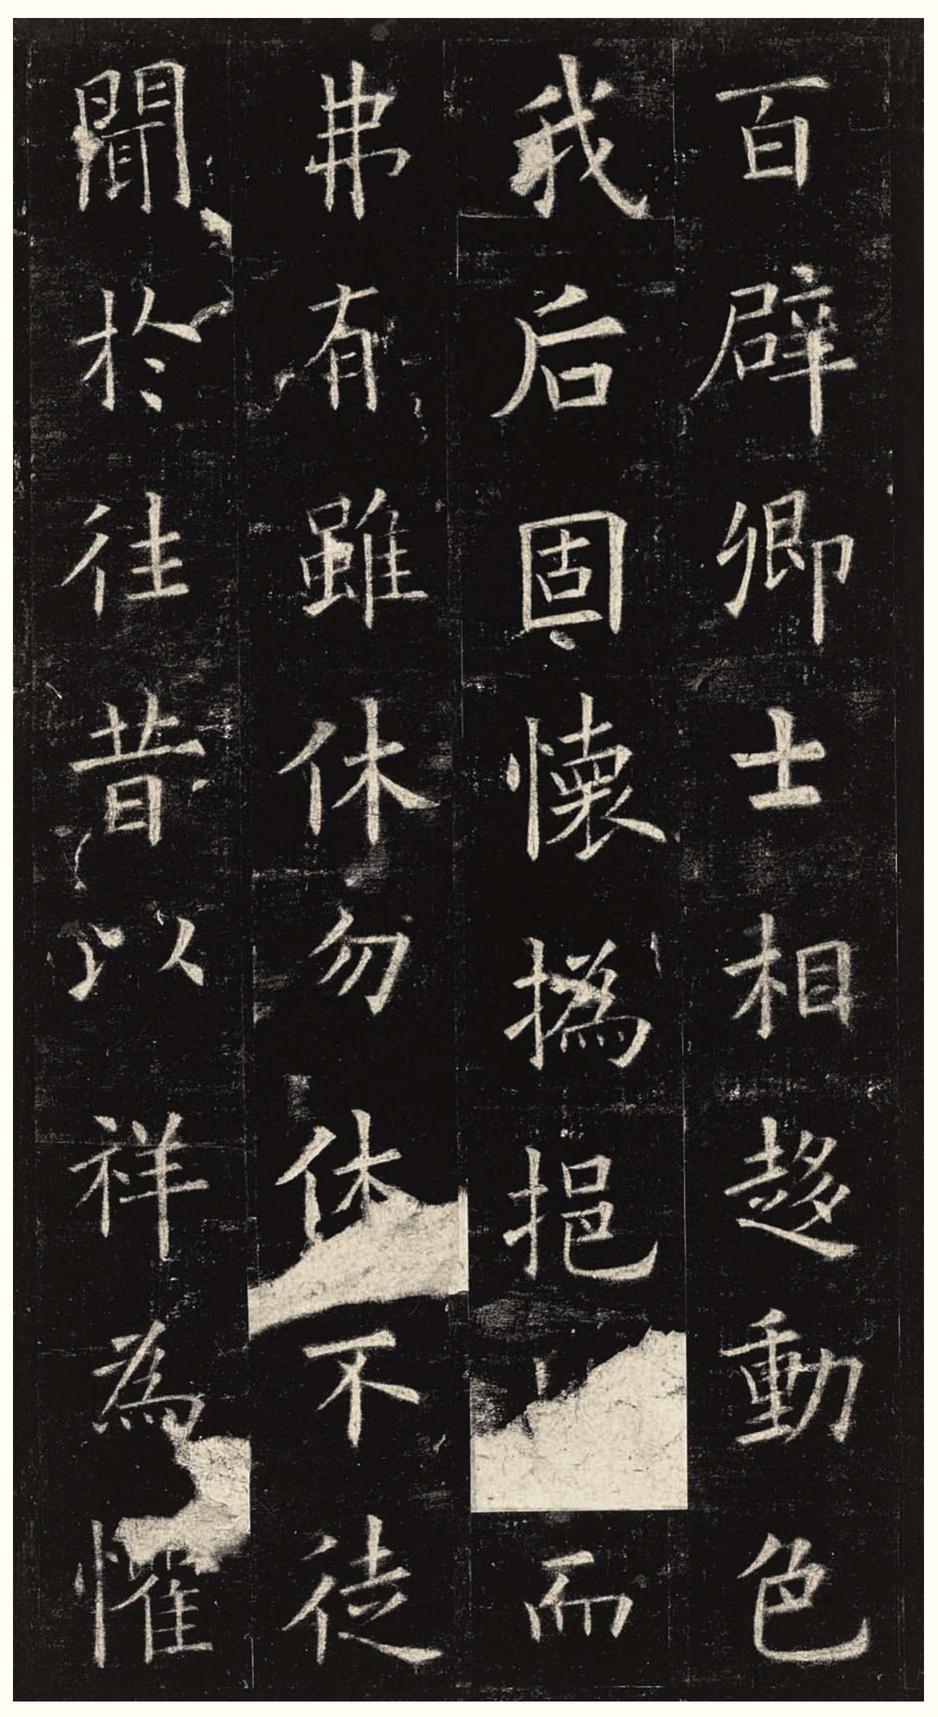 百辟卿士相趍動色
我后固懷撝挹而
弗有雖休勿休不徒
聞於往昔以祥為懼